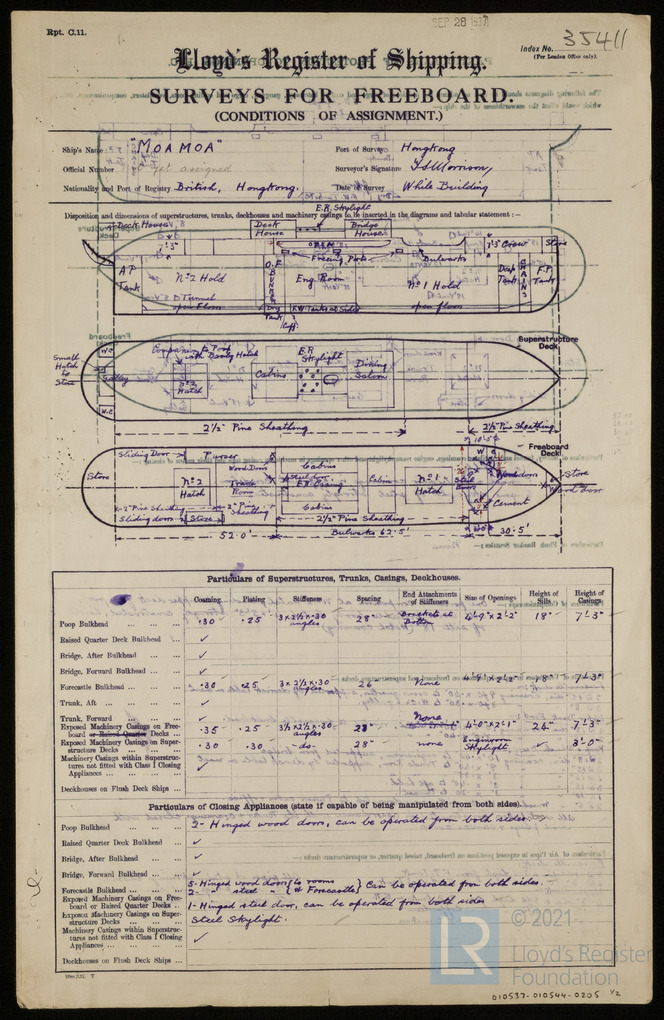 SEP 28 1937
Rpt. C.11.
Index No. 35411
(For London Office only).
Lloyd's Register of Shipping.
SURVEYS FOR FREEBOARD.
(CONDITIONS OF ASSIGNMENT.)
Ship's Name "MOAMOA"
Port of Survey Hongkong
Official Number Not yet assigned
Surveyor's Signature
Nationality and Port of Registry British, Hongkong.
Date of Survey While Building
Disposition and dimensions of superstructures, trunks, deckhouses and machinery casings to be inserted in the diagrams and tabular statement :—
E.R. Skylight
Deck House
Deck House
Bridge House
OPEN
7'3"
Freeing Ports
Bulwarks
7'3" Crew
Store
A.P. Tank
No 2 Hold
O.F. BUNKER
Eng. Room
No 1 Hold
Deep Tank
CHAINS
F.P. Tank
Tunnel
open floors
Dry Tank
F.W. Tanks at Sides
open floors
Superstructure Deck
Small Hatch to Store
W.C.
Galley
W.C.
Companion to Poop with Booby Hatch
No 2 Hatch
Cabins
E.R. Skylight
Dining Saloon
2½" Pine Sheathing
2½" Pine Sheathing
Freeboard Deck
Sliding Door
Purser
Wood Door
Cabins
Steel door
Store
No 2 Hatch
Room
E.R. Casing
Cabins
Cabin
No 1 Hatch
Wood door
Store
Wood door
Cement
2" Pine Sheathing
2" Pine Sheathing
Sliding door
Store
2½" Pine Sheathing
52.0'
Bulwarks 62.5'
30.5'
Particulars of Superstructures, Trunks, Casings, Deckhouses.
Coaming. Plating. Stiffeners. Spacing. End Attachments of Stiffeners. Size of Openings. Height of Sills. Height of Casings.
Poop Bulkhead .30 .25 3 x 2½ x .30 angles 28" Brackets at Bottom 4'-9" x 2'-2" 18" 7'-3"
Raised Quarter Deck Bulkhead ✓
Bridge, After Bulkhead ✓
Bridge, Forward Bulkhead ✓
Forecastle Bulkhead .30 .25 3 x 2½ x .30 angles 26" None 4'-9" x 2'-2" 18" 7'-3"
Trunk, Aft ✓
Trunk, Forward ✓
Exposed Machinery Casings on Freeboard or Raised Quarter Decks .35 .25 3½ x 2½ x .30 angles 28" None 4'-0" x 2'-1" 24" 7'-3"
Exposed Machinery Casings on Superstructure Decks .30 .30 -do- 28" none Engineroom Skylight ✓ 3'-0"
Machinery Casings within Superstructures not fitted with Class I Closing Appliances ✓
Deckhouses on Flush Deck Ships
Particulars of Closing Appliances (state if capable of being manipulated from both sides).
Poop Bulkhead 2- Hinged wood doors, can be operated from both sides.
Raised Quarter Deck Bulkhead ✓
Bridge, After Bulkhead ✓
Bridge, Forward Bulkhead ✓
Forecastle Bulkhead 5-Hinged wood doors (to rooms
2- " steel " (& Forecastle) Can be operated from both sides.
Exposed Machinery Casings on Freeboard or Raised Quarter Decks 1-Hinged steel door, can be operated from both sides
Exposed Machinery Casings on Superstructure Decks Steel Skylight.
Machinery Casings within Superstructures not fitted with Class I Closing Appliances ✓
Deckhouses on Flush Deck Ships
LR
© 2021
Lloyd's Register
Foundation
010537-010544-0205 1/2